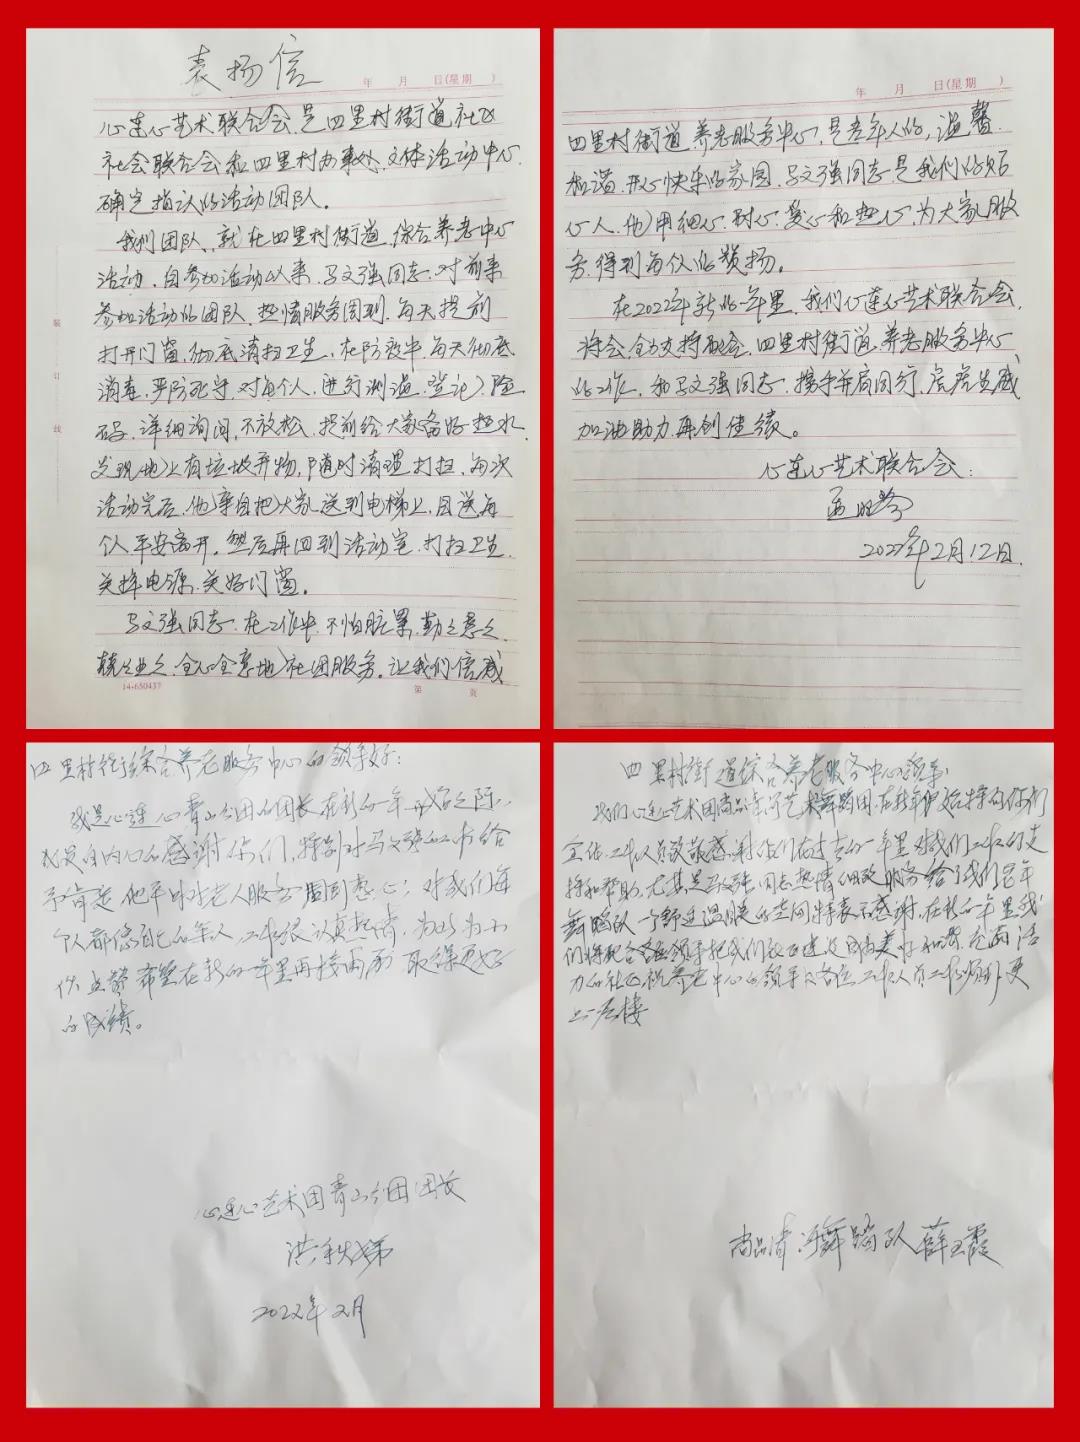 表扬信
年 月 日(星期 )
心连心艺术联合会.是四里村街道社区
社会联合会和四里村办事处.文体活动中心.
确定指认的活动团队。
我们团队、就在四里村街道.综合养老中心
活动.自参加活动以来.马文强同志.对前来
参加活动的团队.热情服务周到.每天提前
打开门窗,彻底清扫卫生.在防疫中.每天彻底
消毒.严防死守.对每个人.进行测温.登记.验
码.详细询问,不放松.提前给大家备好热水.
发现地上有垃圾弃物,随时清理打扫.每次
活动完后.他亲自把大家送到电梯上.目送每
个人平安离开.然后再回到活动室.打扫卫生.
关掉电源.关好门窗。
马文强同志.在工作中.不怕脏累.勤勤恳恳.
兢兢业业.全心全意地社团服务.让我们倍感
装
订
线
14-650437
第 页
年 月 日(星期 )
四里村街道养老服务中心,是老年人的,温馨
和谐.开心快乐的家园.马文强同志是我们的知
心人.他用细心.耐心.爱心和热心.为大家服
务.得到每个人的赞扬。
在2022年新的一年里.我们心连心艺术联合会.
将会.全力支持配合.四里村街道.养老服务中心
的工作.和马文强同志.携手并肩同行.
加油助力再创佳绩。
心连心艺术联合会:
2022年2月12日.
四里村街道综合养老服务中心的领导好:
我是心连心青山分团的团长在新的一年 之际,
我发自内心的感谢你们,特别对马文强的工作给
予肯定 他平时对老人服务周到热心:对我们每
个人都像自己的亲人 工作很认真热情 为
点赞 希望在新的一年里再接再厉 取得更好
的成绩。
心连心艺术团青山分团团长
洪秋娣
2022年2月
四里村街道综合养老服务中心领导
我们心连心艺术团尚品清河艺术舞蹈团.在新年 特向你们
全体工作人员致敬感谢你们在过去的一年里对我们工作的支
持和帮助.尤其是马文强同志热情细致服务给了我们老年
舞蹈队一个舒适温暖的空间特表示感谢.在新的一年里我
们将配合各级领导把我们社区建设的更美好和谐.充满活
力的社区祝养老中心的领导及各位工作人员工作顺利更
上一层楼
尚品清河舞蹈队 薛玉霞